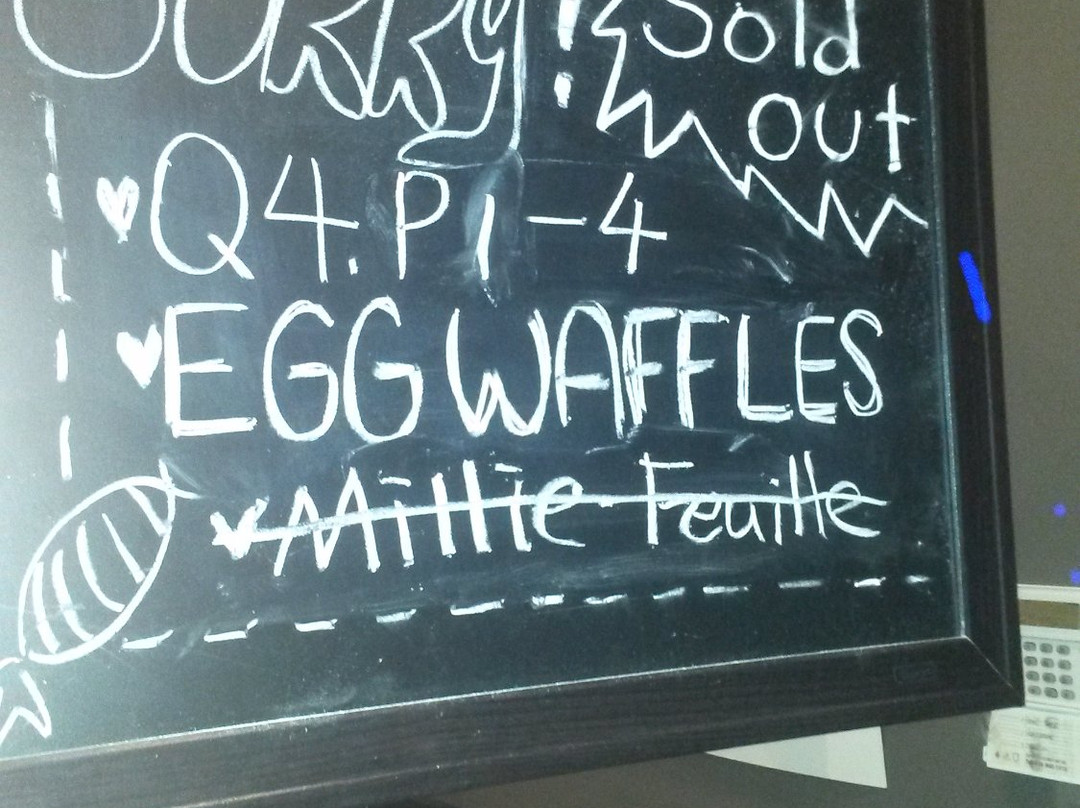 Sorry! Sold
out
Q4. Pi-4
EGG WAFFLES
Millie Feuille